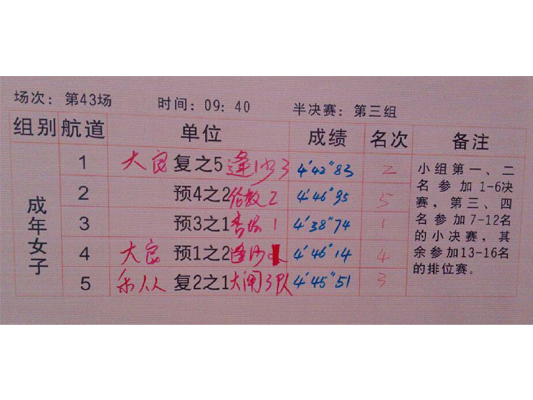 场次：第43场 时间：09：40 半决赛：第三组
组别 航道 单位 成绩 名次 备注
成年女子
1 大良 复之5 逢沙3 4'42"83 2
2 预4之2 伦教2 4'46"95 5
3 预3之1 1 4'38"74 1
4 大良 预1之2 逢沙 4'46"14 4
5 乐从 复2之1 大闸3队 4'45"51 3
小组第一、二
名参加1-6决
赛，第三、四
名参加7-12名
的小决赛，其
余参加13-16名
的排位赛。